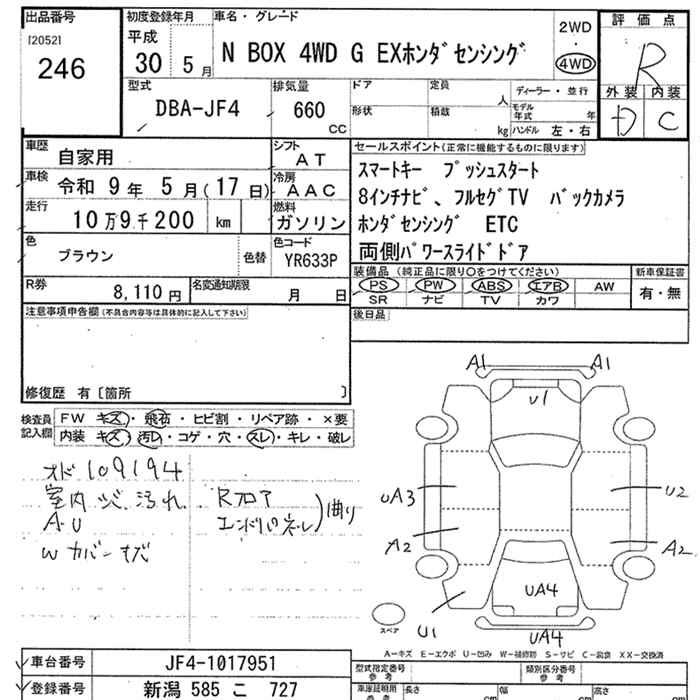 出品番号 初度登録年月 車名・グレード 評価点
[2052] 平成 2WD
246 30 年 5 月 N BOX 4WD G EXホンダセンシング 4WD R
型式 排気量 ドア 定員 人 ディーラー・並行 外装 内装
DBA-JF4 660 CC 形状 積載 kg モデル年式 年 D C
ハンドル 左・右
車歴 自家用 シフト AT セールスポイント(正常に機能するものに限ります)
車検 令和 9 年 5 月 (17 日) 冷房 AAC スマートキー プッシュスタート
走行 10 万 9 千 200 km 燃料 ガソリン 8インチナビ、フルセグTV バックカメラ
ホンダセンシング ETC
色 ブラウン 色替 色コード YR633P 両側パワースライドドア
装備品 (純正品に限り○をつけてください) 新車保証書
R券 8,110 円 名変通知期限 月 日 PS PW ABS エアB AW 有・無
SR ナビ TV カワ
注意事項申告欄(不具合内容等は具体的に記入して下さい) 後日品
修復歴 有 [箇所 ]
検査員記入欄 FW キズ・飛石・ヒビ割・リペア跡・×要
内装 キズ・汚レ・コゲ・穴・スレ・キレ・破レ
オド 109194
室内 汚れ Rフロア
AU エンドパネル )曲り
W カバー
A1 A1
U1
UA3 U2
A2 A2
UA4
U1 UA4
スペア
A-キズ E-エクボ U-凹み W-補修跡 S-サビ C-腐食 XX-交換済
車台番号 JF4-1017951 型式指定番号 参考 類別区分番号 参考
登録番号 新潟 585 こ 727 車庫証明用 参考 長さ cm 幅 cm 高さ cm